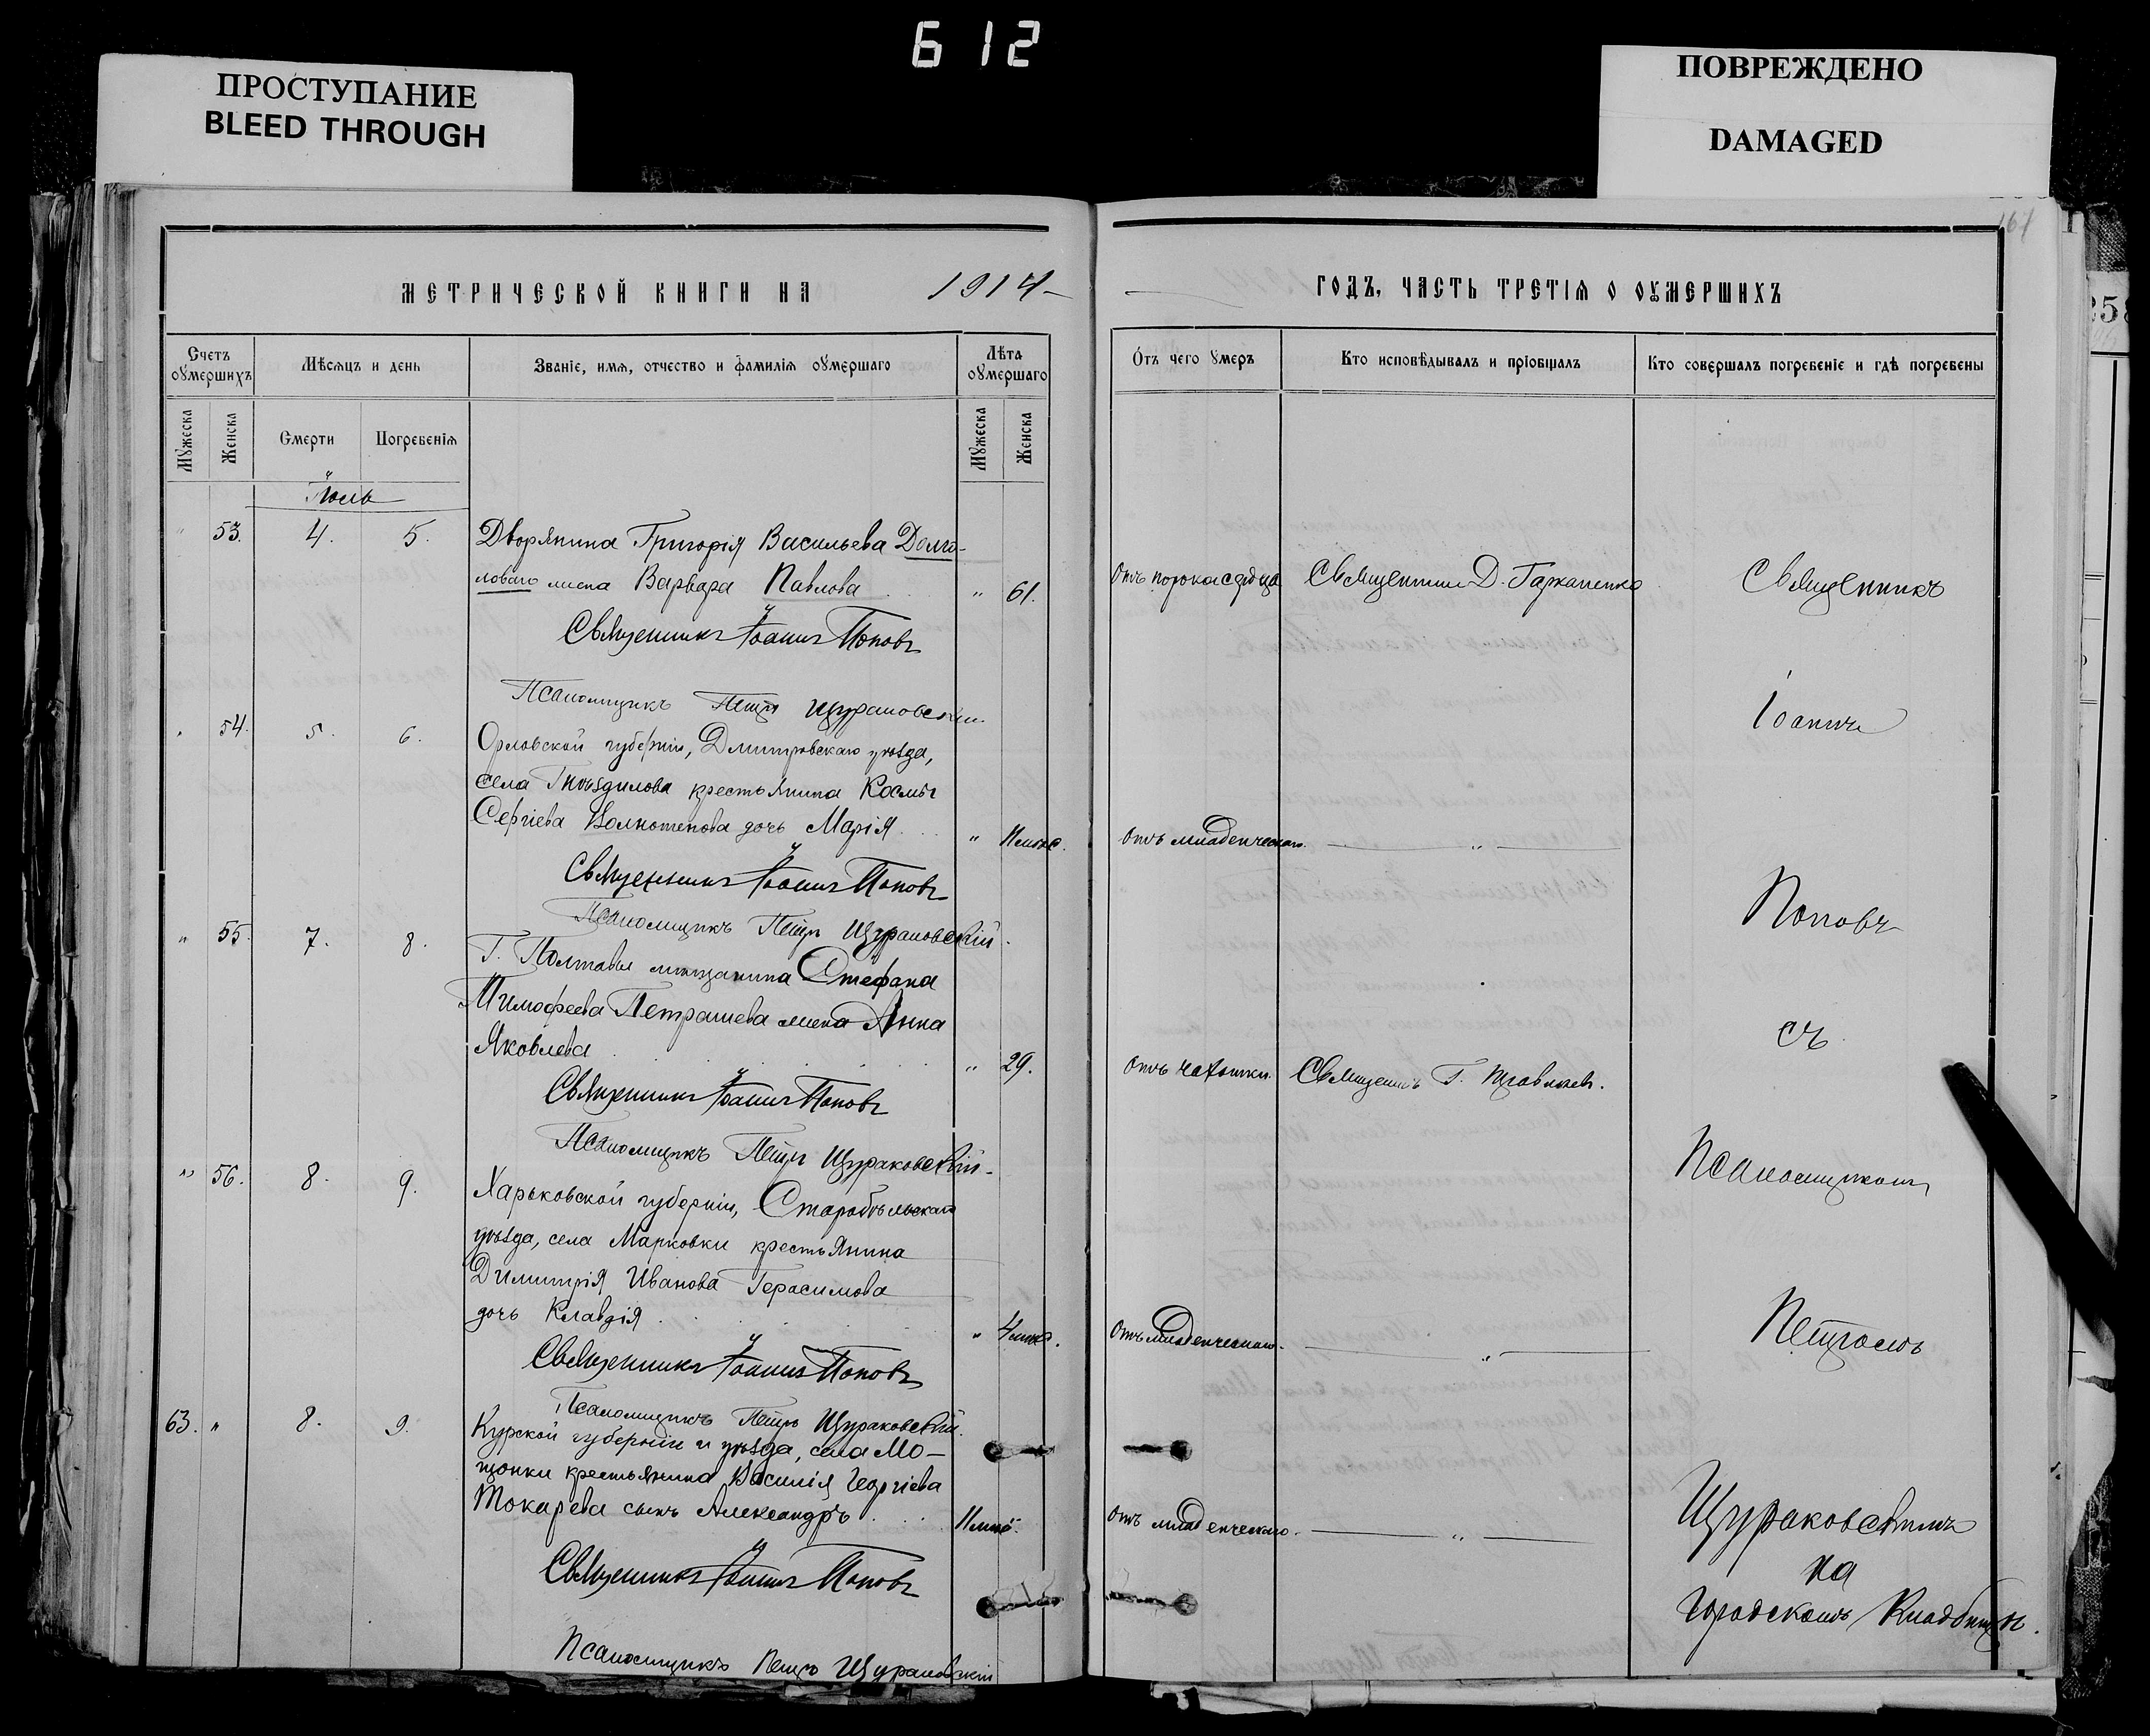 612
ПРОСТУПАНИЕ
BLEED THROUGH
ПОВРЕЖДЕНО
DAMAGED
161
МЕТРИЧЕСКОЙ КНИГИ НА 1914
ГОДЪ, ЧАСТЬ ТРЕТІЯ О ОУМЕРШИХЪ
Счетъ оумершихъ
Мѣсяцъ и день
Званіе, имя, отчество и фамилія оумершаго
Лѣта оумершаго
Мужеска
Женска
Смерти
Погребенія
Мужеска
Женска
Отъ чего умеръ
Кто исповѣдывалъ и пріобщалъ
Кто совершалъ погребеніе и гдѣ погребены
258
Іюль
" 53. 4. 5. Дворянина Григорія Васильева Долго-
ловаго жена Варвара Павлова " 61. Отъ порока сердца Священник Д.
Священникъ Іоаннъ Поповъ
Псаломщикъ Петръ Щураковскій
" 54. 5. 6. Орловской губерніи, Дмитровскаго уѣзда,
села Гнѣздилова крестьянина Космы
Сергіева дочь Марія " 11 мѣс. Отъ младенческаго. "
Священникъ Іоаннъ Поповъ
Псаломщикъ Петръ Щураковскій
" 55. 7. 8. Г. Полтавы мѣщанина Стефана
Тимофеева Петрашева жена Анна
Яковлева " 29. Отъ чахотки. Священникъ Г.
Священникъ Іоаннъ Поповъ
Псаломщикъ Петръ Щураковскій
" 56. 8. 9. Харьковской губерніи, Старобѣльскаго
уѣзда, села Марковки крестьянина
Димитрія Иванова Герасимова
дочь Клавдія " 4 мѣс. Отъ младенческаго. "
Священникъ Іоаннъ Поповъ
Псаломщикъ Петръ Щураковскій
63. " 8. 9. Курской губерніи и уѣзда, села Мо-
щонки крестьянина Василія Георгіева
Токарева сынъ Александръ 11 мѣс. Отъ младенческаго. "
Священникъ Іоаннъ Поповъ
Псаломщикъ Петръ Щураковскій
Священникъ
Іоаннъ
Поповъ
съ
Псаломщикомъ
Петромъ
Щураковскимъ
на
Городскомъ Кладбищѣ.